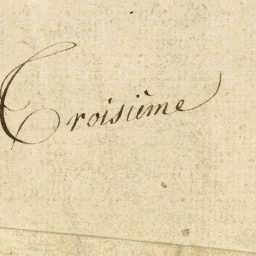 Croisième